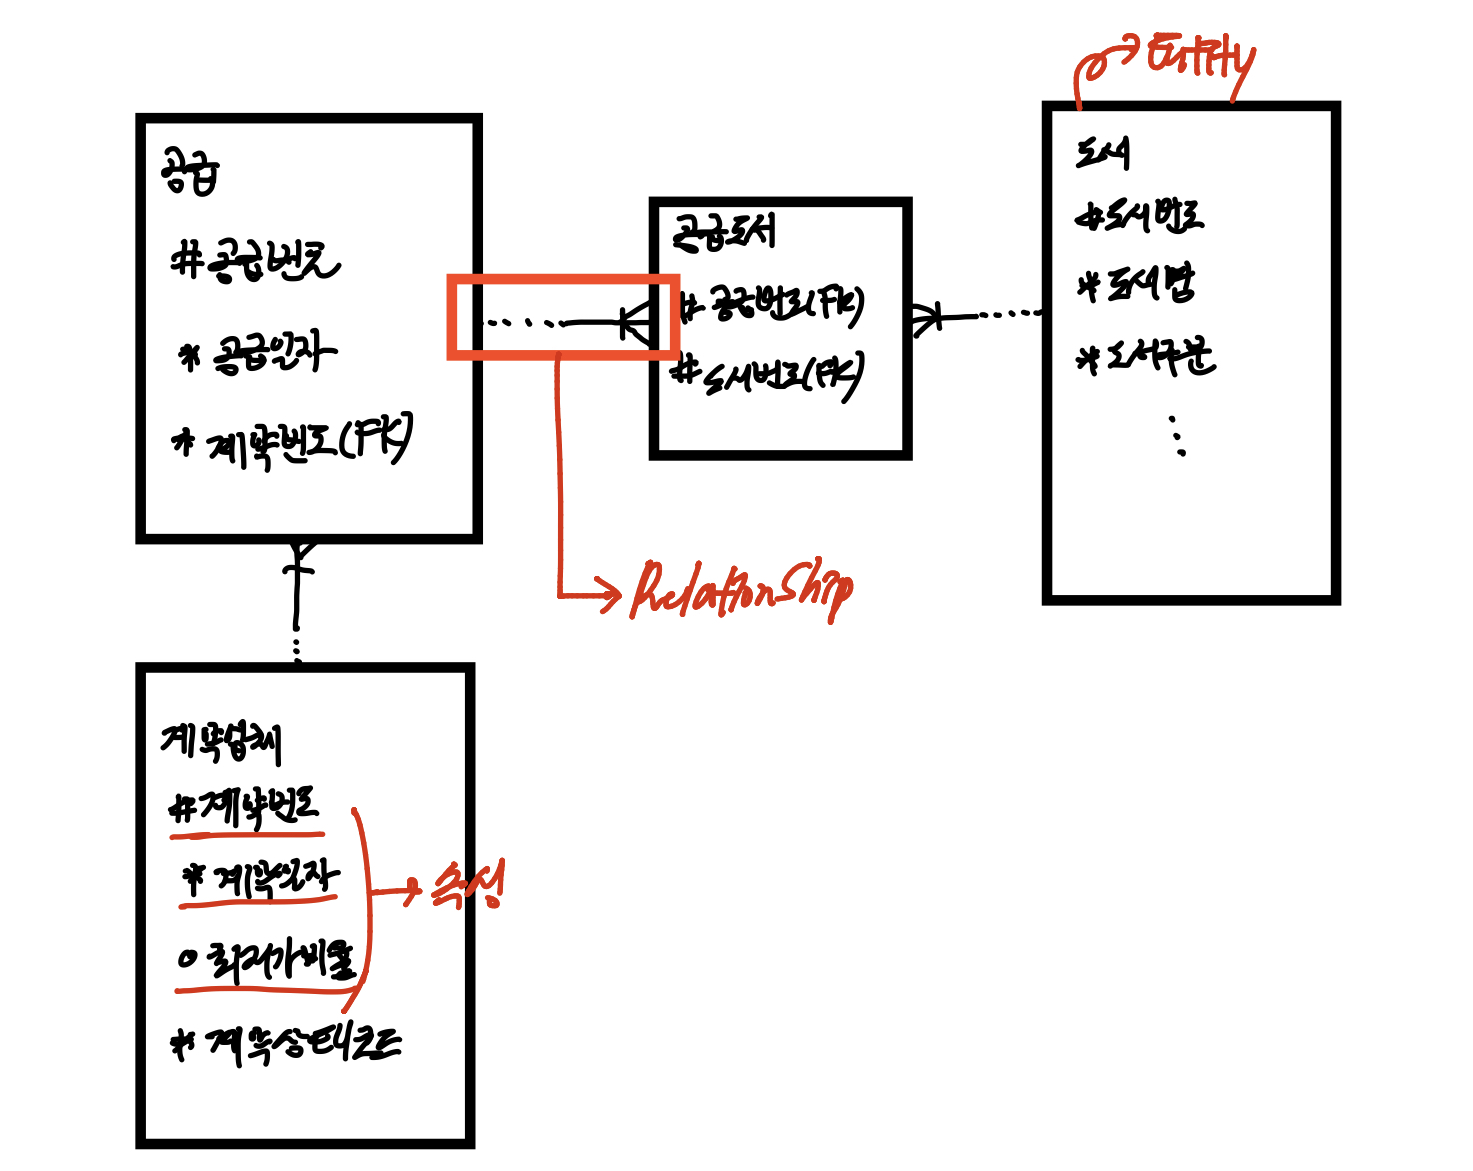 Entity
공급
#공급번호
* 공급일자
* 계약번호(FK)
공급도서
# 공급번호(FK)
# 도서번호(FK)
도서
#도서번호
* 도서명
* 도서구분
Relationship
계약업체
#계약번호
* 계약일자
속성
* 계약상태코드